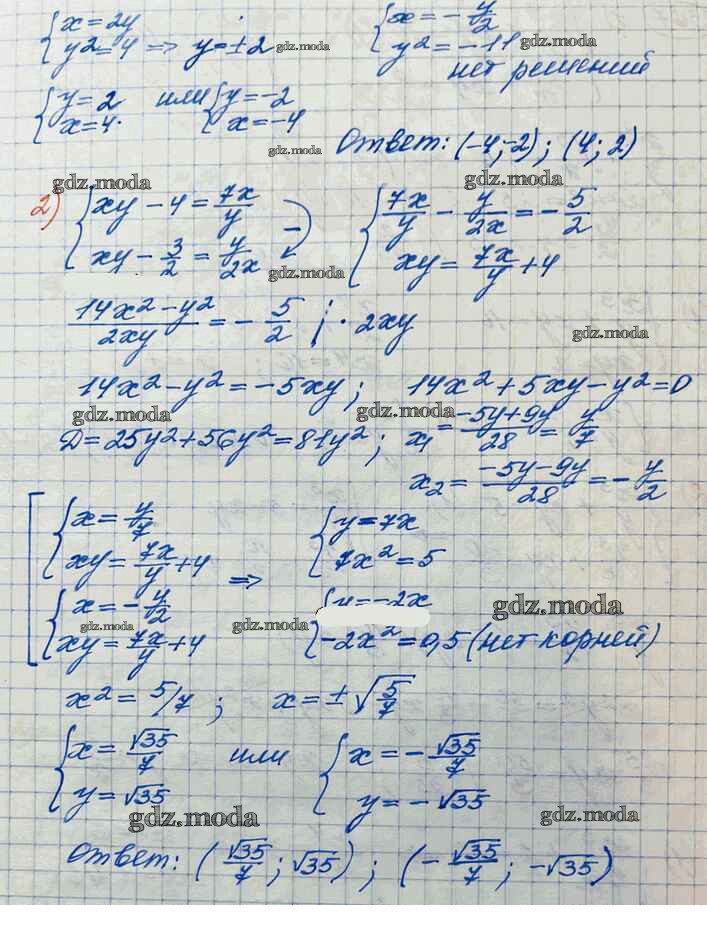 {x = 2y
{y² = 4 => y = ±2 gdz.moda
{x = -y/2
{y² = -11 gdz.moda
нет решений
{y = 2 или {y = -2
{x = 4. {x = -4
gdz.moda
Ответ: (-4; -2); (4; 2)
gdz.moda gdz.moda
2) {xy - 4 = 7x/y
{xy - 3/2 = y/2x
−
gdz.moda
{7x/y - y/2x = -5/2
{xy = 7x/y + 4
(14x² - y²)/2xy = -5/2 | · 2xy
gdz.moda
14x² - y² = -5xy; 14x² + 5xy - y² = 0
gdz.moda gdz.moda
D = 25y² + 56y² = 81y²; x₁ = (-5y + 9y)/28 = y/7
x₂ = (-5y - 9y)/28 = -y/2
[{x = y/7
{xy = 7x/y + 4
{x = -y/2
{xy = 7x/y + 4
gdz.moda
=>
{y = 7x
{7x² = 5
gdz.moda
{y = -2x
{-2x² = 0,5 (нет корней)
gdz.moda
x² = 5/7; x = ±√(5/7)
{x = √35/7 или {x = -√35/7
{y = √35 {y = -√35
gdz.moda gdz.moda
Ответ: (√35/7; √35); (-√35/7; -√35)